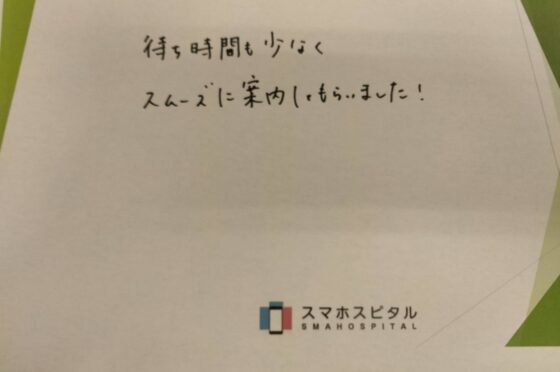 待ち時間も少なく
スムーズに案内してもらいました!
スマホスピタル
SMAHOSPITAL